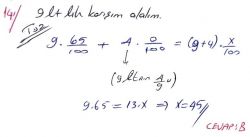 14) 9 lt lik karışım alalım.
9 · 65/100 + 4 · 0/100 = (9+4) · x/100
9.65 = 13.x ⇒ x = 45
CEVAP: B